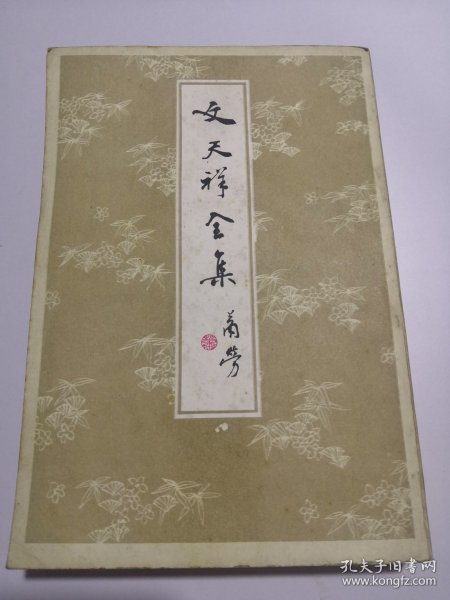 文天祥全集
萧劳
孔夫子旧书网
www.kongfz.com